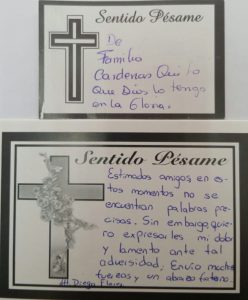 Sentido Pésame
De
Familia
Cardenas
que Dios lo tenga
en la Gloria.
Sentido Pésame
Estimados amigos en es-
tos momentos no se
encuentran palabras pre-
cisas. Sin embargo quie-
ro expresarles mi dolor
y lamento ante tal
adversidad, Envio muchas
fuerzas y un abrazo fraterno
Att. Diego